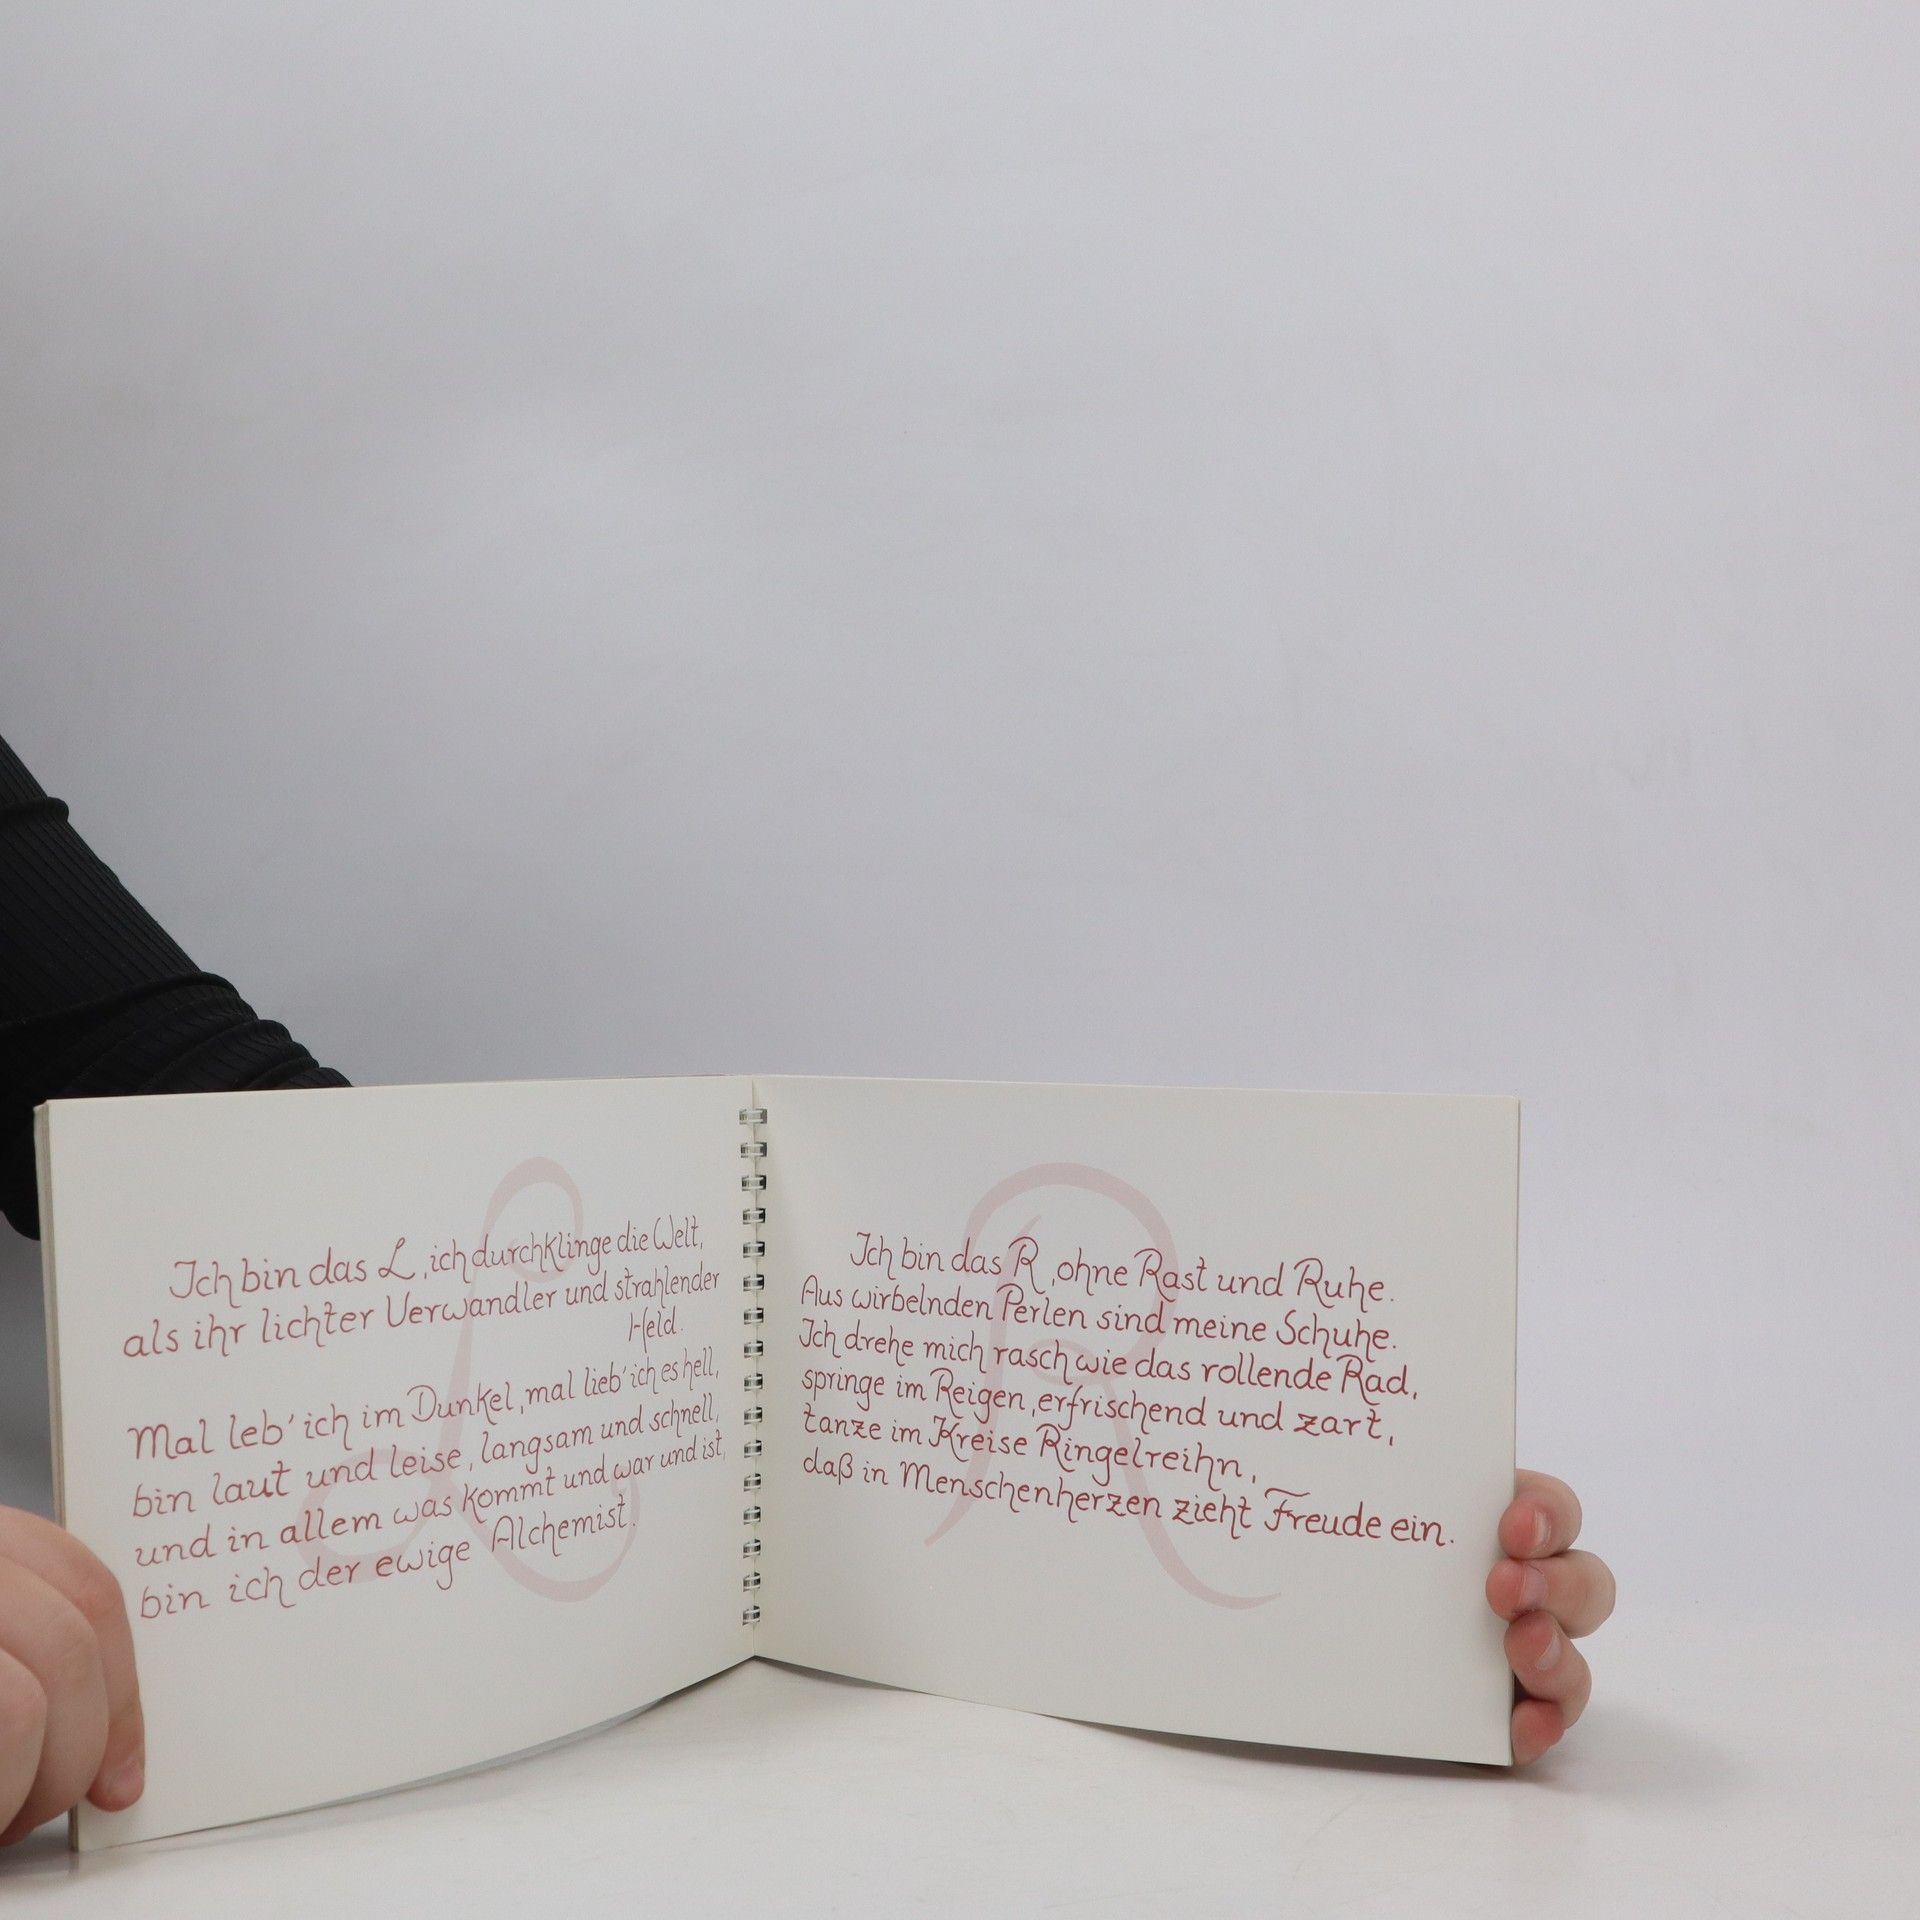 L
Ich bin das L, ich durchklinge die Welt,
als ihr lichter Verwandler und strahlender
Held.
Mal leb' ich im Dunkel, mal lieb' ich es hell,
bin laut und leise, langsam und schnell,
und in allem was kommt und war und ist,
bin ich der ewige Alchemist.
R
Ich bin das R, ohne Rast und Ruhe.
Aus wirbelnden Perlen sind meine Schuhe.
Ich drehe mich rasch wie das rollende Rad,
springe im Reigen, erfrischend und zart,
tanze im Kreise Ringelreihn,
daß in Menschenherzen zieht Freude ein.